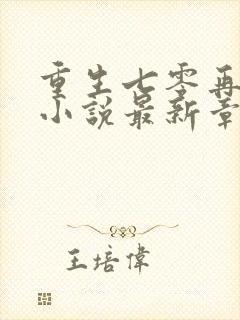 重生七零再
小說最新章
王培偉